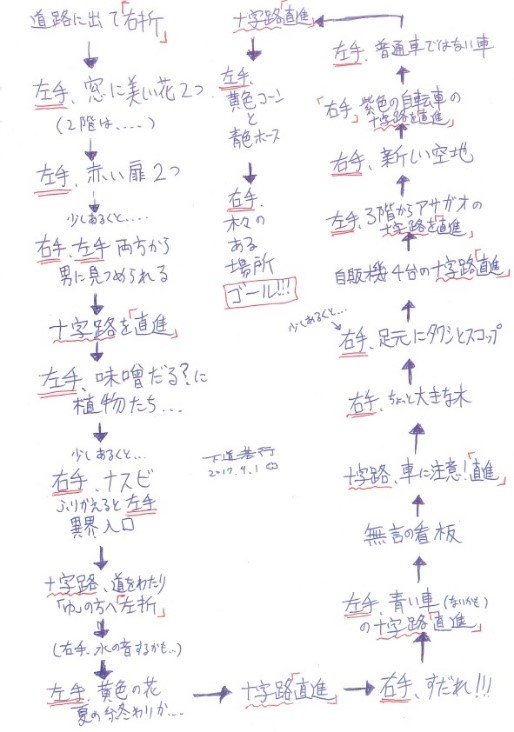 道路に出て「右折」
左手、窓に美い花2つ
(2階は.....)
左手、赤い扉2つ
少しあるくと.....
右手、左手 両方から
男に見つめられる
十字路を「直進」
左手、味噌だる?に
植物たち...
少しあるくと...
右手、ナスビ
ふりかえると左手
異界入口
十字路、道をわたり
「ゆ」の方へ「左折」
(右手、水の音するかも...)
左手、黄色の花
夏の終わりか...
十字路「直進」
右手、すだれ!!!
左手、青い車(ないかも)
の十字路「直進」
無言の看板
十字路、車に注意!「直進」
右手、ちょっと大きな木
少しあるくと...
右手、足元にタワシとスコップ
自販機4台の十字路「直進」
左手、3階からアサガオの
十字路を「直進」
右手、新しい空地
「右手」紫色の自転車の
十字路を「直進」
左手、普通車ではない車
十字路「直進」
左手、
黄色コーン
と
青色ホース
右手、
木々の
ある
場所
ゴール!!!
下道基行
2017.9.1